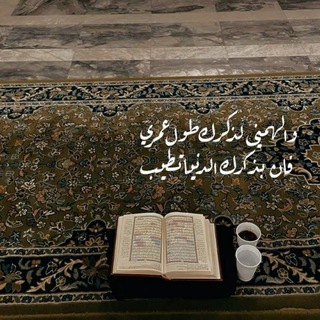 والهمني لذكرك طول عمري
فان بذكرك الدنيا تطيب